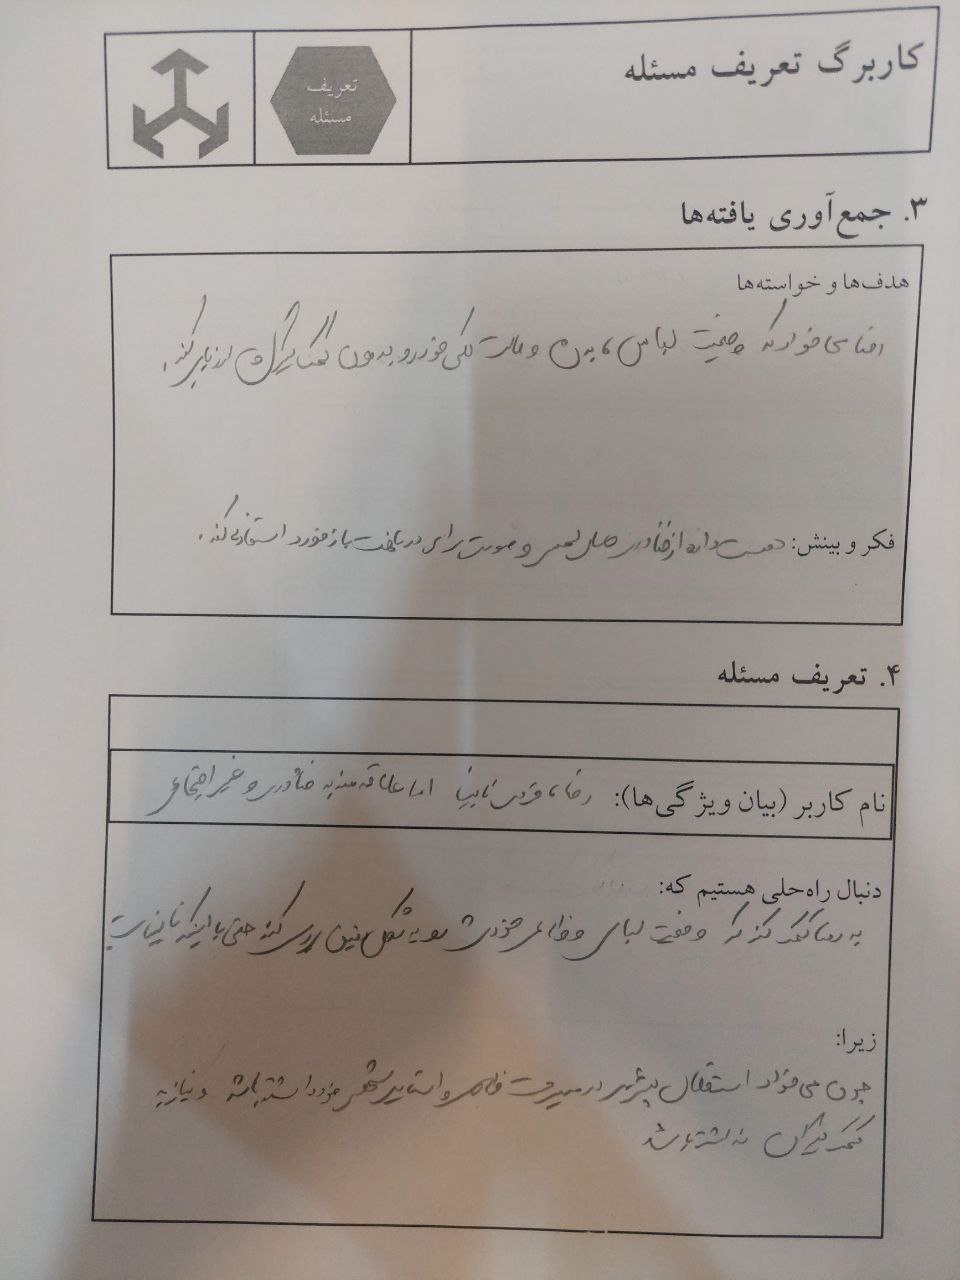 کاربرگ تعریف مسئله
تعریف
مسئله
۳. جمع‌آوری یافته‌ها
هدف‌ها و خواسته‌ها
می‌خواد که وضعیت لباس، بدن و حالت کلی خودرو بدون کمک دیگران ارزیابی کند.
فکر و بینش: دوست داره از فناوری های لمسی و صورت برای دریافت بازخورد استفاده کند.
۴. تعریف مسئله
نام کاربر (بیان ویژگی‌ها): رضا، فردی نابینا اما علاقه مند به فناوری و غیر اجتماعی
دنبال راه‌حلی هستیم که:
به رضا کمک کند که وضعیت لباس و ظاهر خودش رو به شکل بررسی کند حتی با اینکه نابیناست
زیرا:
چون می‌خواد استقلال بیشتری در مدیریت ظاهر و استایل شخصی خود داشته باشد و نیاز به
کمک دیگران نداشته باشد